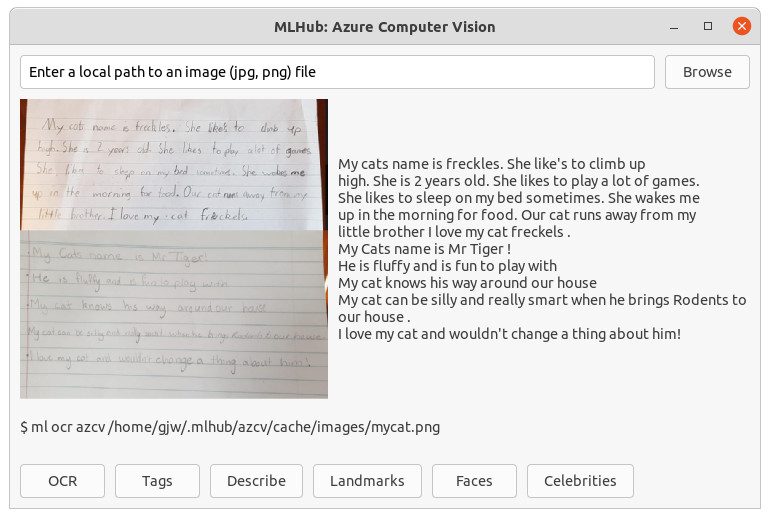 MLHub: Azure Computer Vision
Enter a local path to an image (jpg, png) file
Browse
My cat name is freckles. She like's to climb up
high. She is 2 years old. She likes to play a lot of games.
She likes to sleep on my bed sometimes. She wakes me
up in the morning for food. Our cat runs away from my
little brother. I love my cat freckels.
My Cats name is Mr Tiger!
He is fluffy and is fun to play with
My cat knows his way around our house
My cat can be silly and really smart when he brings Rodents to our house
I love my cat and wouldn't change a thing about him!
My cats name is freckles. She like's to climb up
high. She is 2 years old. She likes to play a lot of games.
She likes to sleep on my bed sometimes. She wakes me
up in the morning for food. Our cat runs away from my
little brother I love my cat freckels .
My Cats name is Mr Tiger !
He is fluffy and is fun to play with
My cat knows his way around our house
My cat can be silly and really smart when he brings Rodents to
our house .
I love my cat and wouldn't change a thing about him!
$ ml ocr azcv /home/gjw/.mlhub/azcv/cache/images/mycat.png
OCR
Tags
Describe
Landmarks
Faces
Celebrities